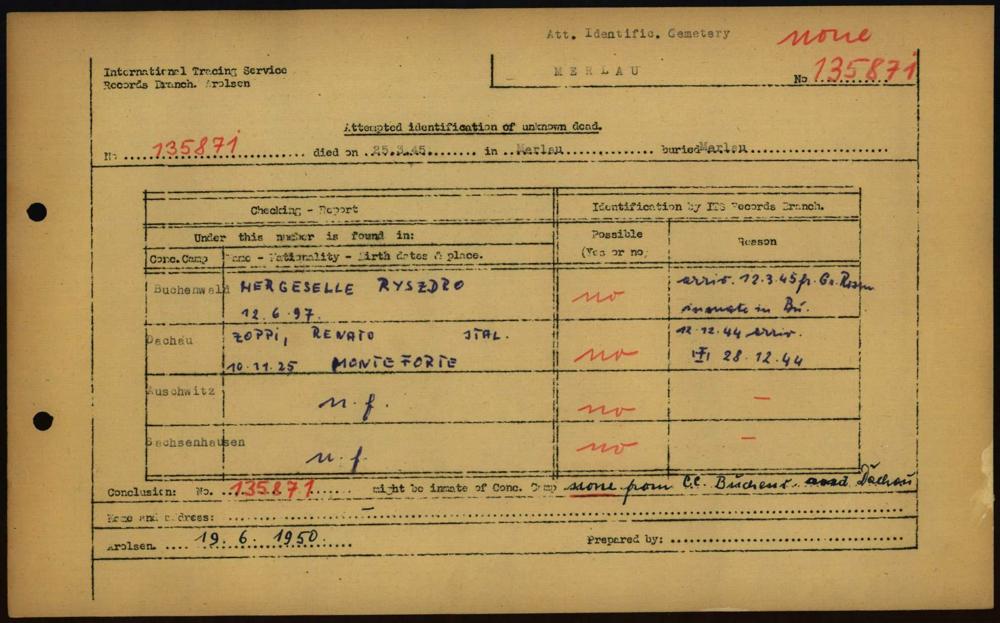 Att. Identific. Cemetery none
International Tracing Service
Records Branch. Arolsen
MERLAU No 135871
Attempted identification of unknown dead.
No 135871 died on 25.3.45 in Merlau buried Merlau
Checking - Report Identification by ITS Records Branch.
Under this number is found in: Possible (Yes or no) Reason
Conc.Camp Name - Nationality - Birth dates & place.
Buchenwald HERGESELLE RYSZDRO no arriv. 12.3.45 fr. Gr. Rosen
12.6.97. inmate in Bu.
Dachau ZOPPI, RENATO ITAL. no 12.12.44 arriv.
10.11.25 MONTE FORTE 28.12.44
Auschwitz n.f. no -
Sachsenhausen n.f. no -
Conclusion: No. 135871 might be inmate of Conc. Camp none from C.C. Buchenw. and Dachau
Name and address: -
Arolsen 19. 6. 1950. Prepared by: